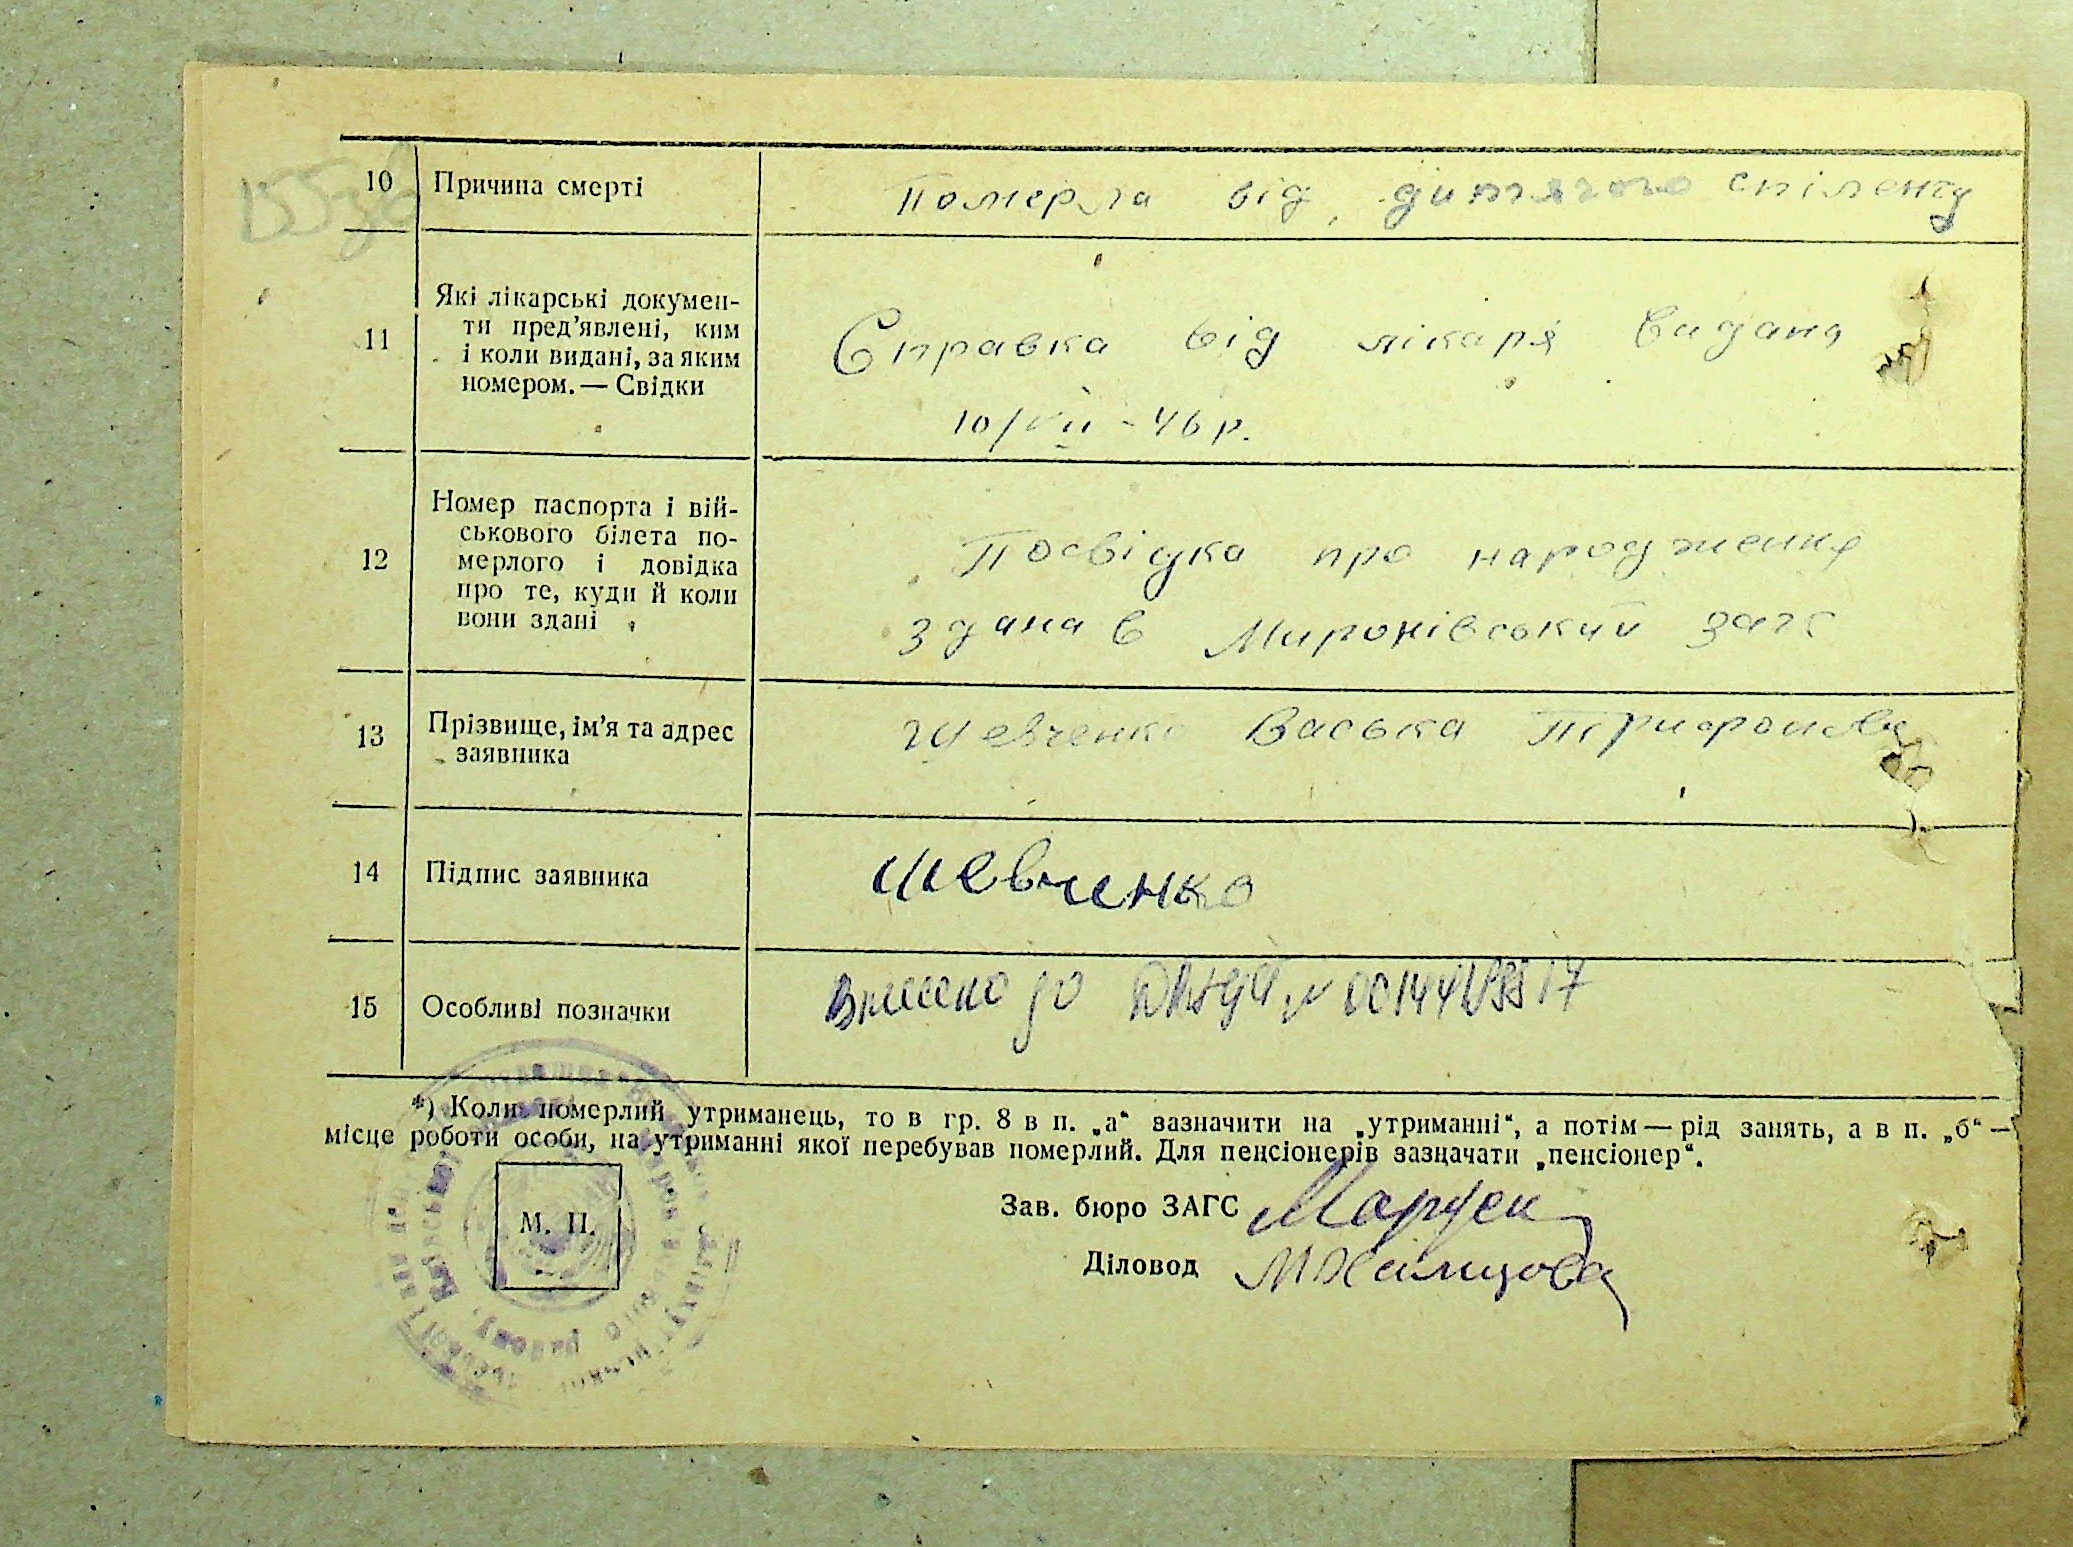 10 Причина смерті Померла від дитячого
11 Які лікарські докумен-
ти пред'явлені, ким
і коли видані, за яким
номером. — Свідки
Справка від лікаря видана
10/VII - 46 р.
12 Номер паспорта і вій-
ськового білета по-
мерлого і довідка
про те, куди й коли
вони здані
Посвідка про народження
здана в Миронівський загс
13 Прізвище, ім'я та адрес
заявника
Шевченко Васька
14 Підпис заявника Шевченко
15 Особливі позначки Внесено до
*) Коли померлий утриманець, то в гр. 8 в п. „а“ зазначити на „утриманні“, а потім — рід занять, а в п. „б“ —
місце роботи особи, на утриманні якої перебував померлий. Для пенсіонерів зазначати „пенсіонер“.
М. П.
Зав. бюро ЗАГС
Діловод